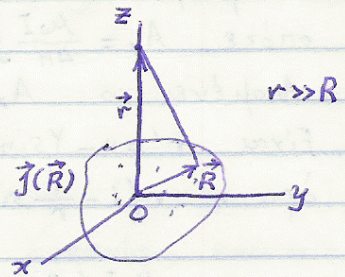 z
r⃗
r ≫ R
j⃗(R⃗)
R⃗
O
y
x